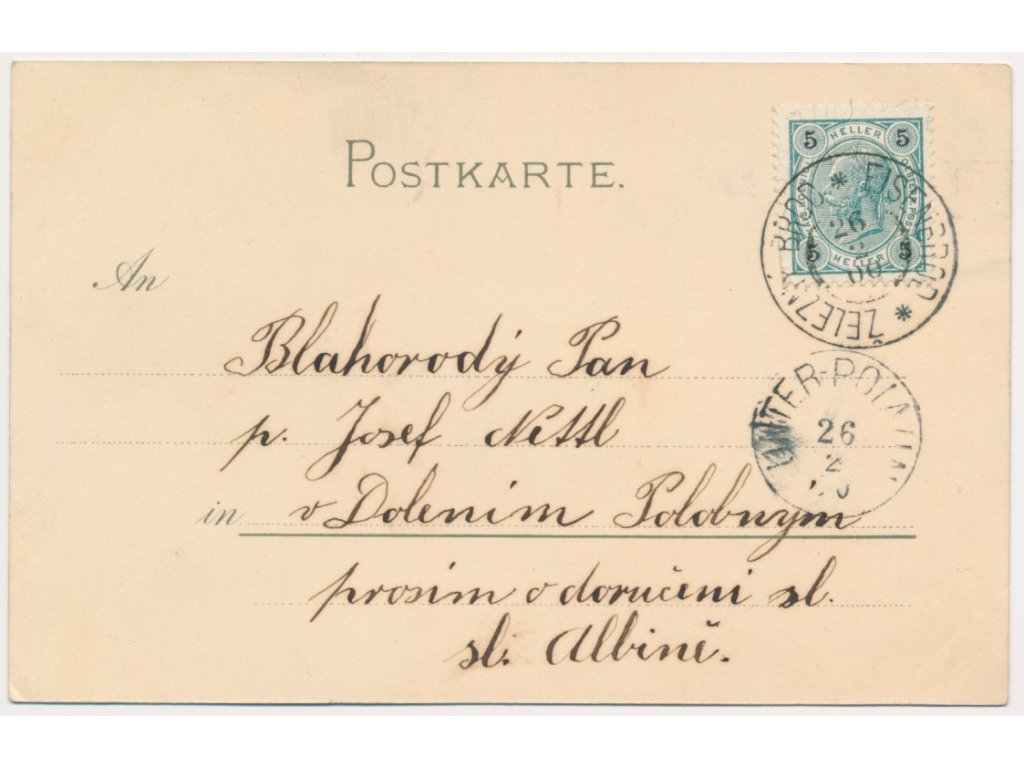 POSTKARTE.
5 HELLER 5
5 HELLER 5
EISENBROD * ŽELEZNÝ BROD *
26
2
00
An
Blahorodý Pan
p. Josef Nettl
UNTER-POLAUN
26
2
in v Dolením Polobnym
prosím o doručeni sl.
sl. Albině.